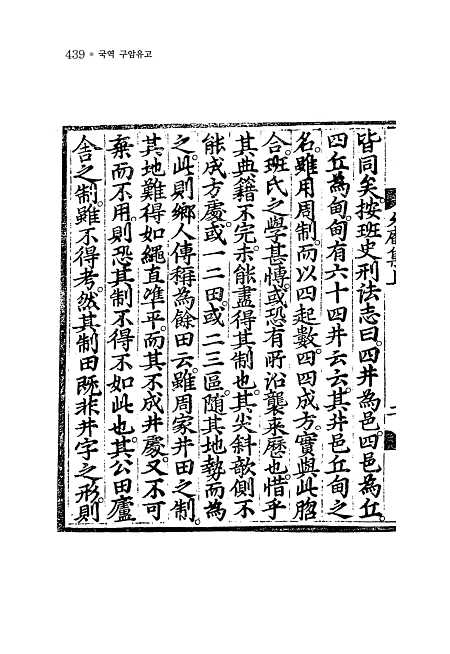 439 ● 국역 구암유고
皆同矣。按班史刑法志曰。四井爲邑四邑爲丘。
四丘爲甸。甸有六十四井云云。其井邑丘甸之
名。雖用周制。而以四起數。四四成方。實與此脗
合。班氏之學甚愽。或恐有所沿襲来歷也。惜乎
其典籍不完。未能盡得其制也。其尖斜欹側不
能成方處。或一二田。或二三區。随其地勢而爲
之。此則鄉人傳稱爲餘田云。雖周家井田之制。
其地難得如繩直準平。而其不成井處。又不可
棄而不用。則恐其制不得不如此也。其公田廬
舍之制。雖不得考。然其制田旣非井字之形。則